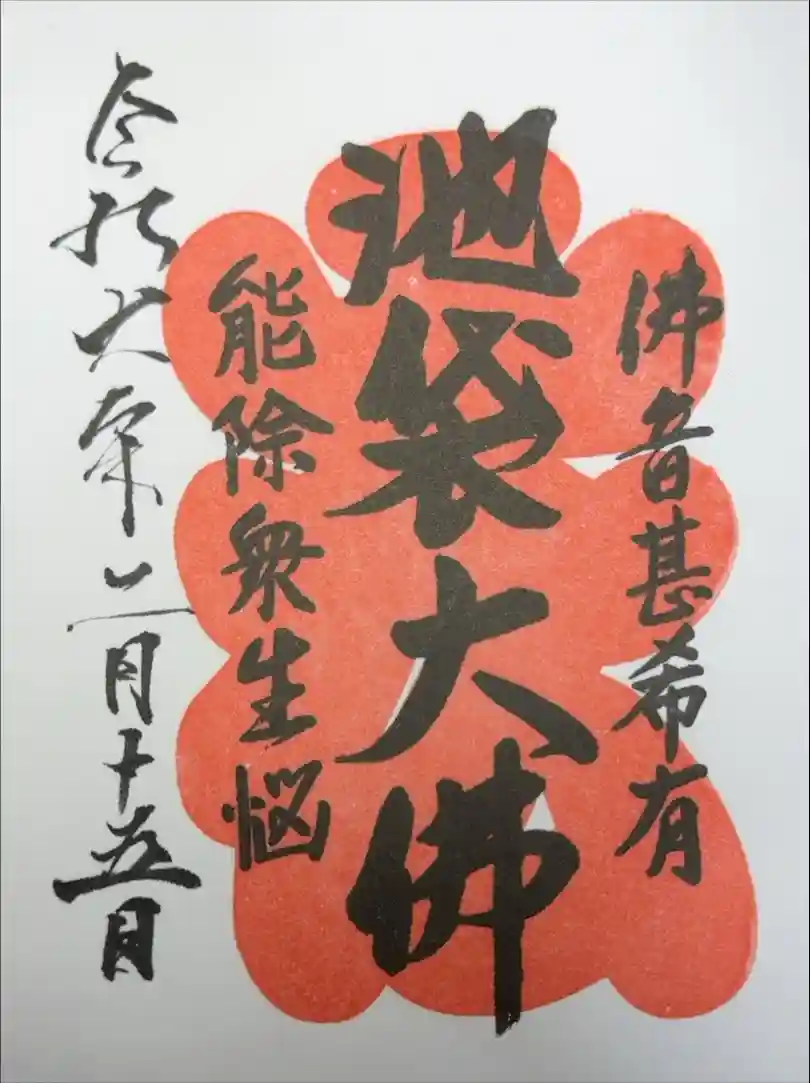 佛音甚希有
池袋大佛
能除衆生悩
令和六年二月十五日